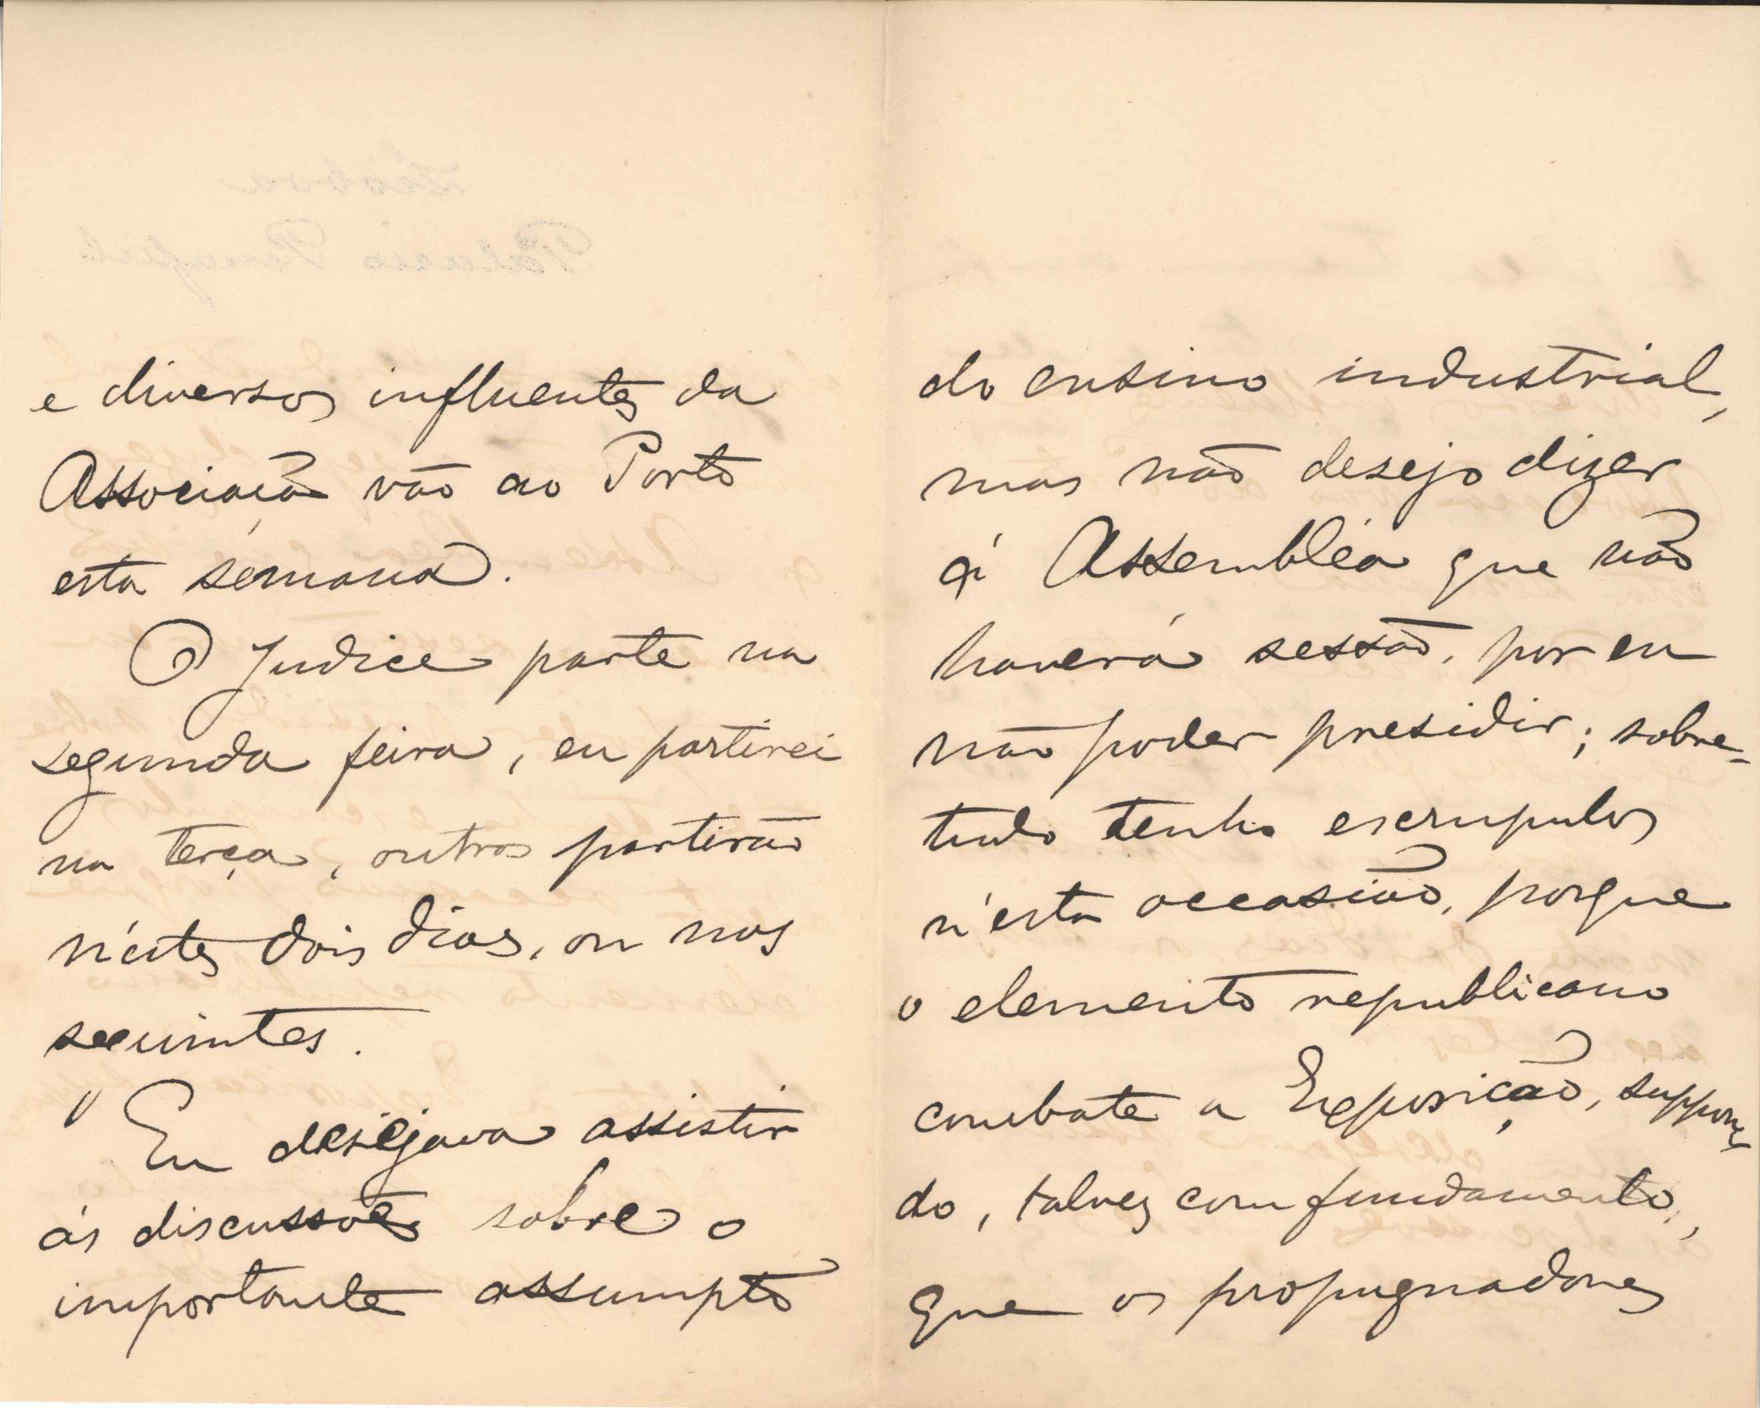 e diversos influentes da
Associação vão ao Porto
esta semana.
O Judice parte na
segunda feira, eu partirei
na terça, outros partirão
n'estes dois dias, ou nos
seguintes.
Eu desejava assistir
ás discussões sobre o
importante assumpto
do ensino industrial,
mas não desejo dizer
á Assembléa que não
haverá sessão, por eu
não poder presidir; sobre-
tudo tenho escrupulos
n'esta occasião, porque
o elemento republicano
combate a Exposição, suppon-
do, talvez com fundamento,
que os propugnadores